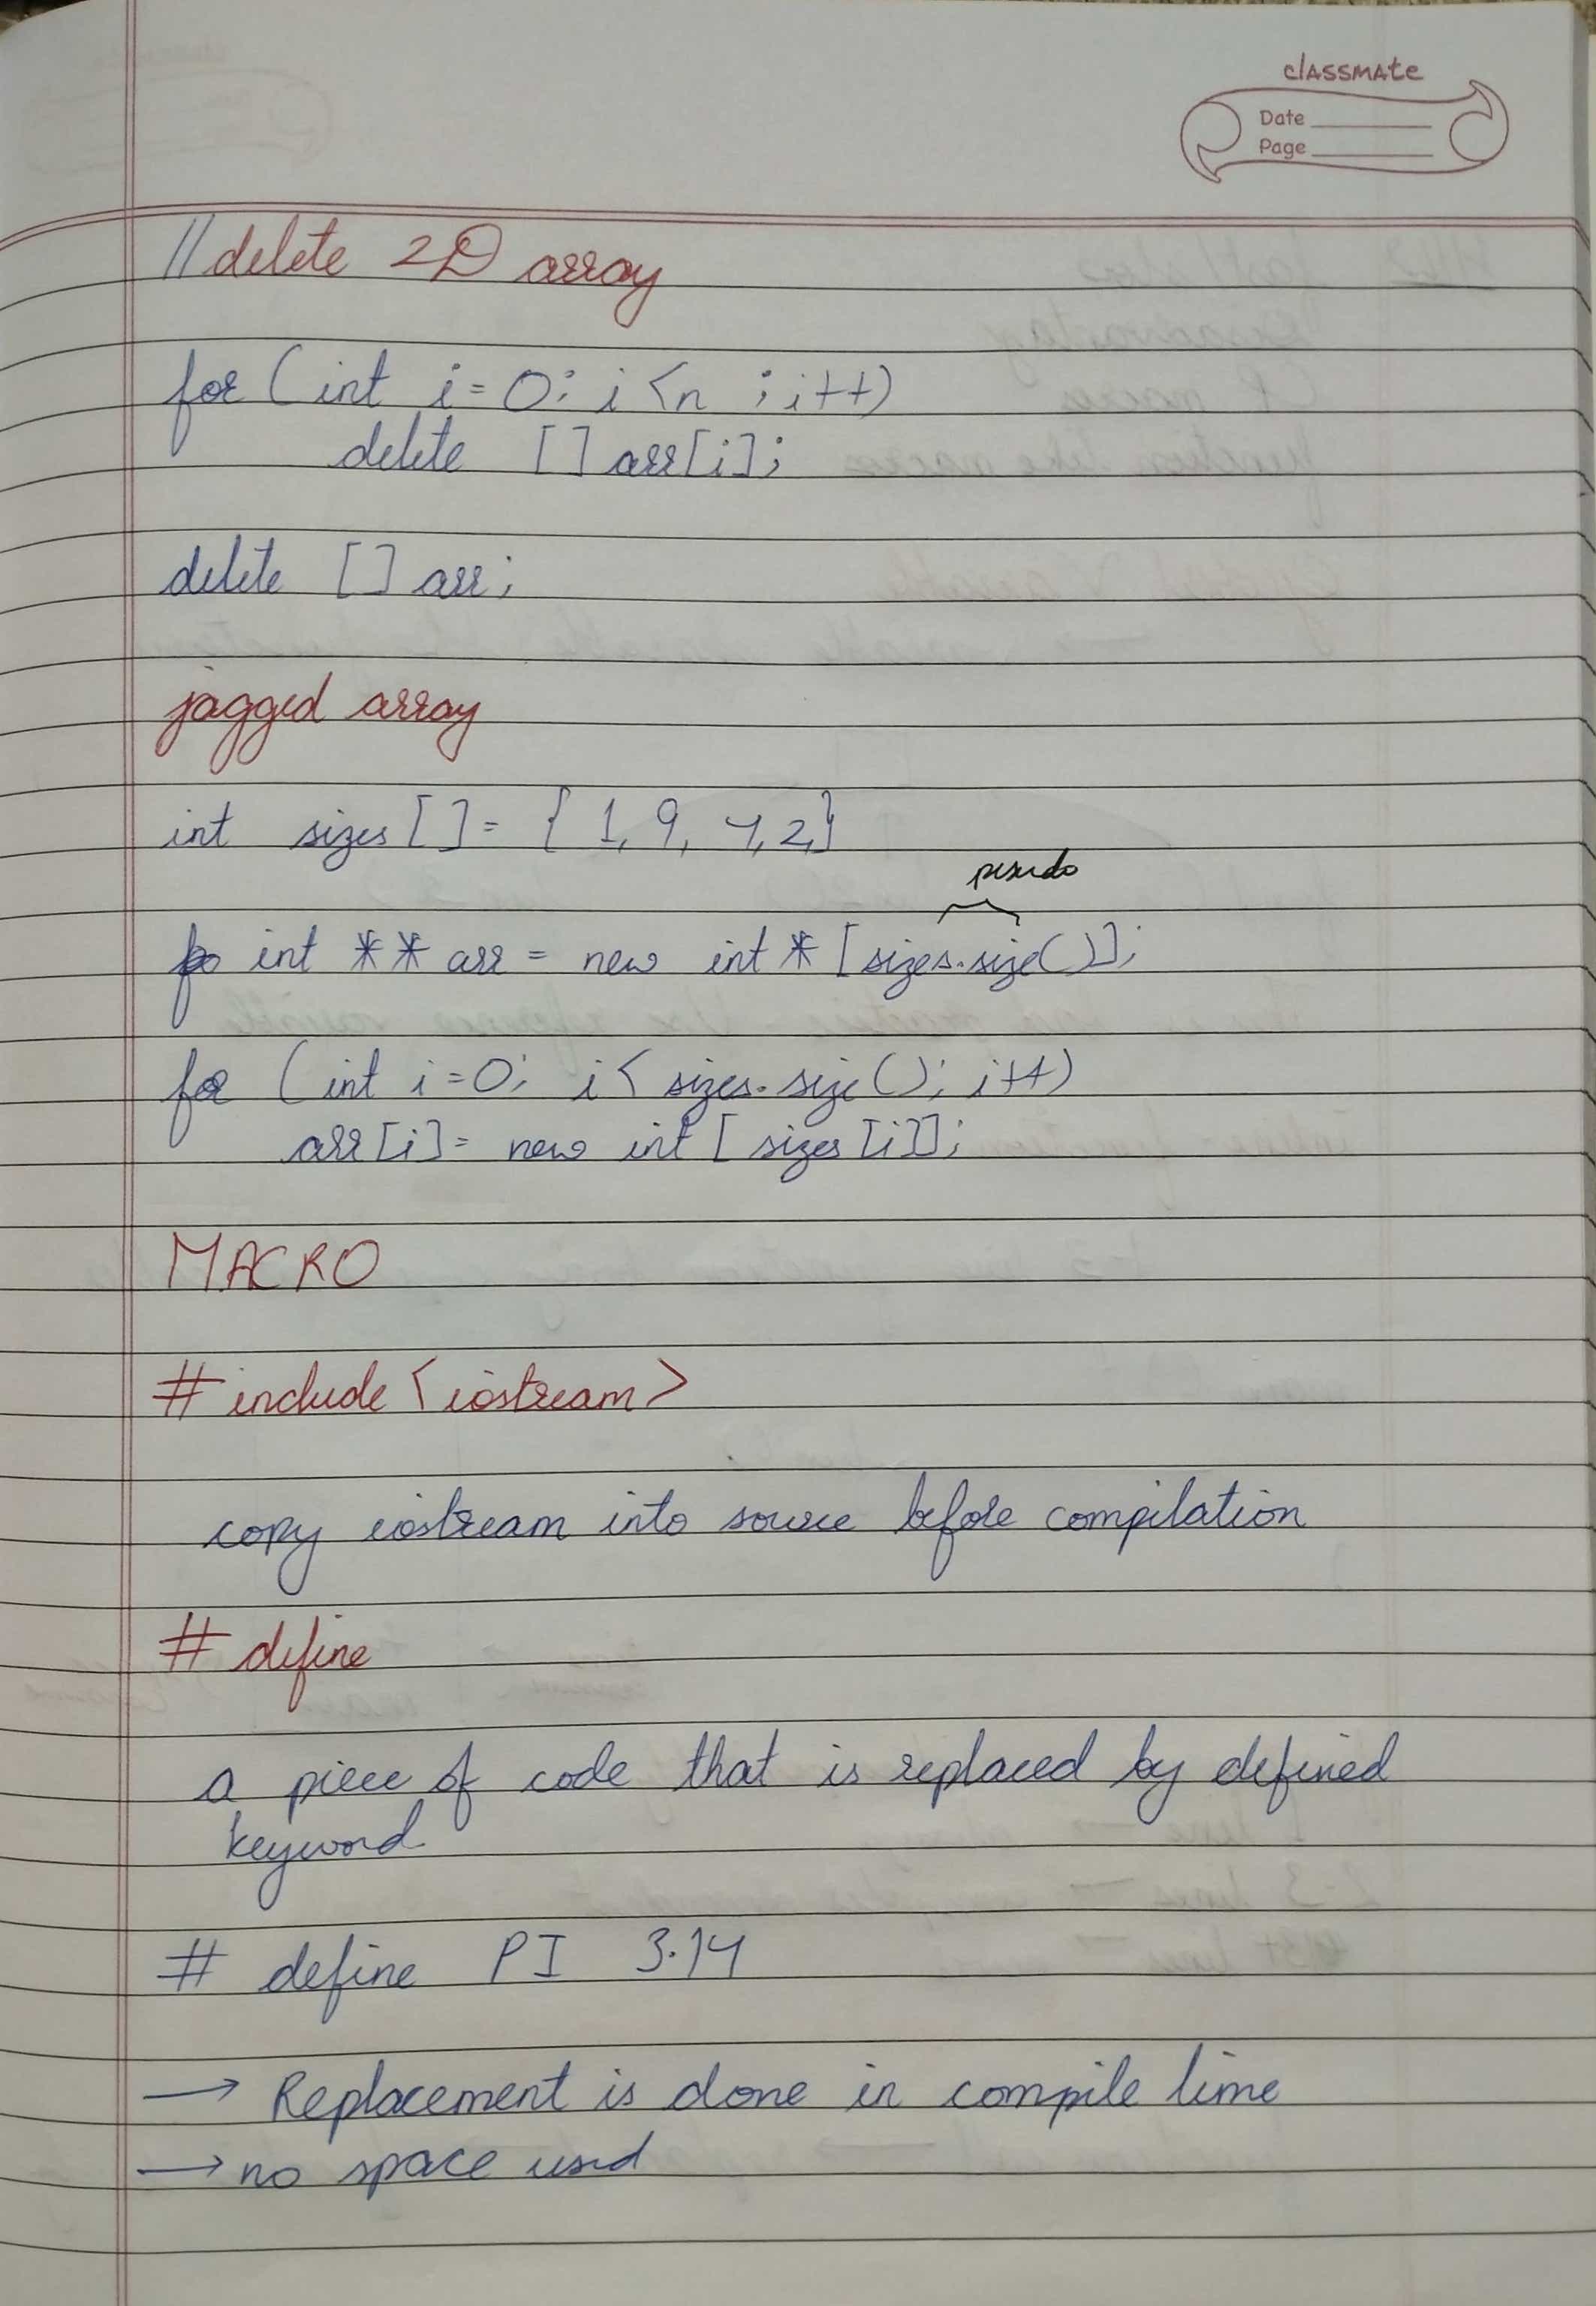 classmate
Date
Page
//delete 2D array
for (int i=0; i<n ; i++)
delete [] arr[i];
delete [] arr;
jagged array
int sizes [] = { 1, 9, 4, 2,}
pseudo
int ** arr = new int * [sizes.size()];
for (int i=0; i< sizes.size(); i++)
arr[i] = new int [sizes[i]];
MACRO
#include <iostream>
copy iostream into source before compilation
# define
a piece of code that is replaced by defined
keyword
# define PI 3.14
→ Replacement is done in compile time
→ no space used